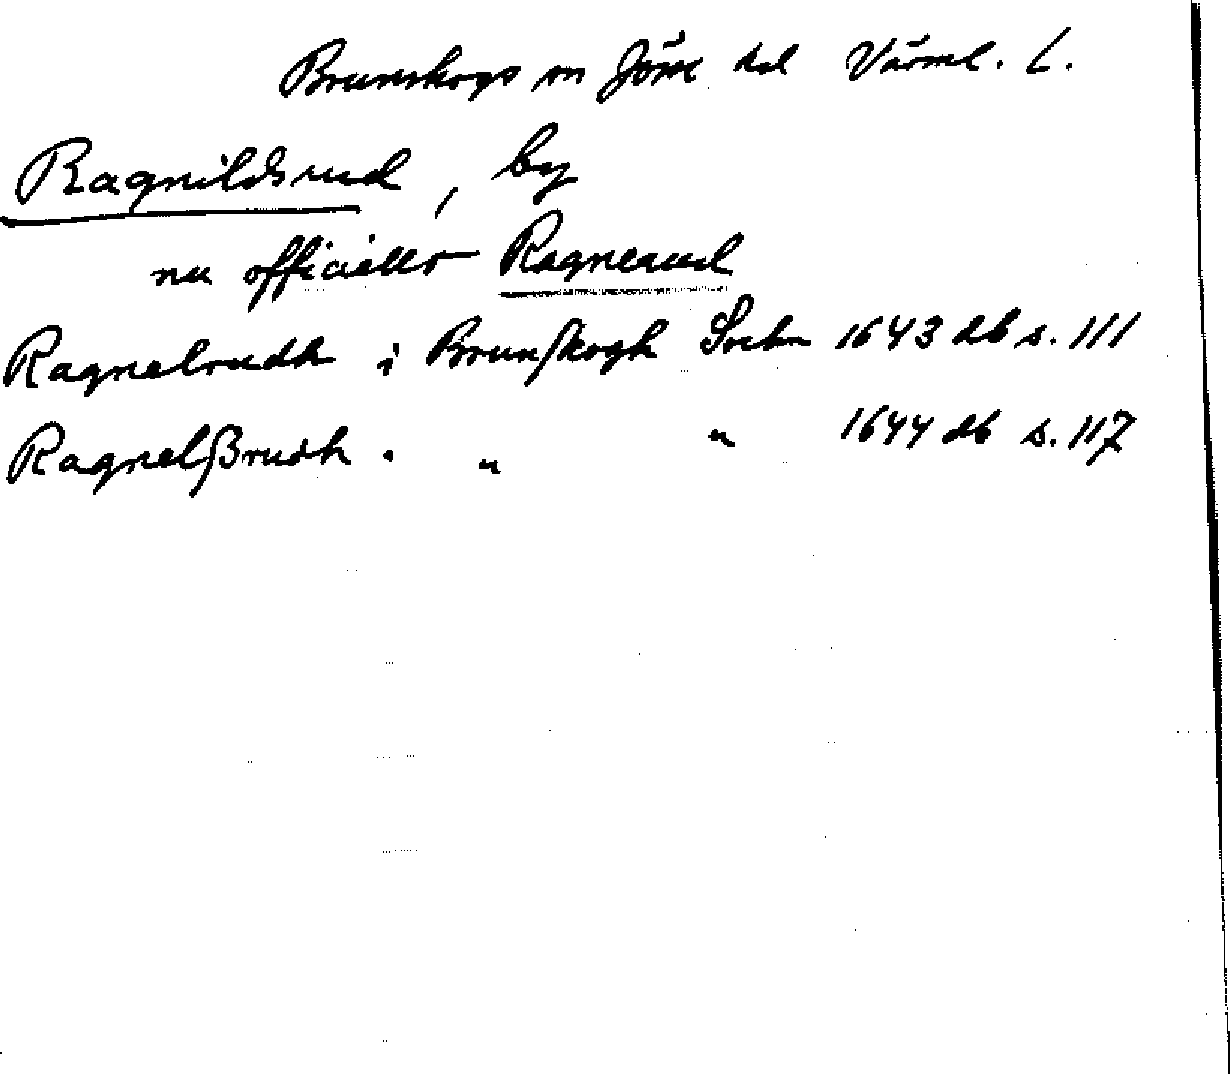 Brunskogs sn Jösse hd Värml. L.
Ragnildsrud, by
nu officiellt Ragnerud
Ragnelrudh i Brunskogh Sochn 1643 db s. 111
Ragnelßrudh . " " 1644 db s. 117